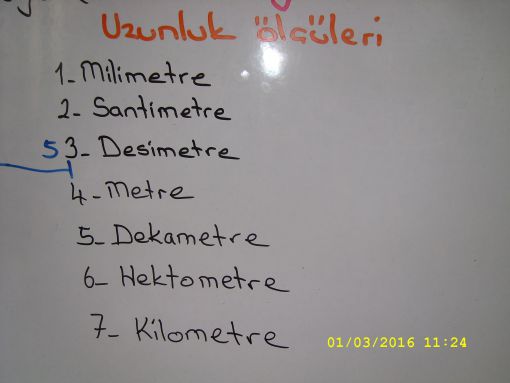 Uzunluk ölçüleri
1- Milimetre
2- Santimetre
5 3- Desimetre
4- Metre
5- Dekametre
6- Hektometre
7- Kilometre
01/03/2016 11:24